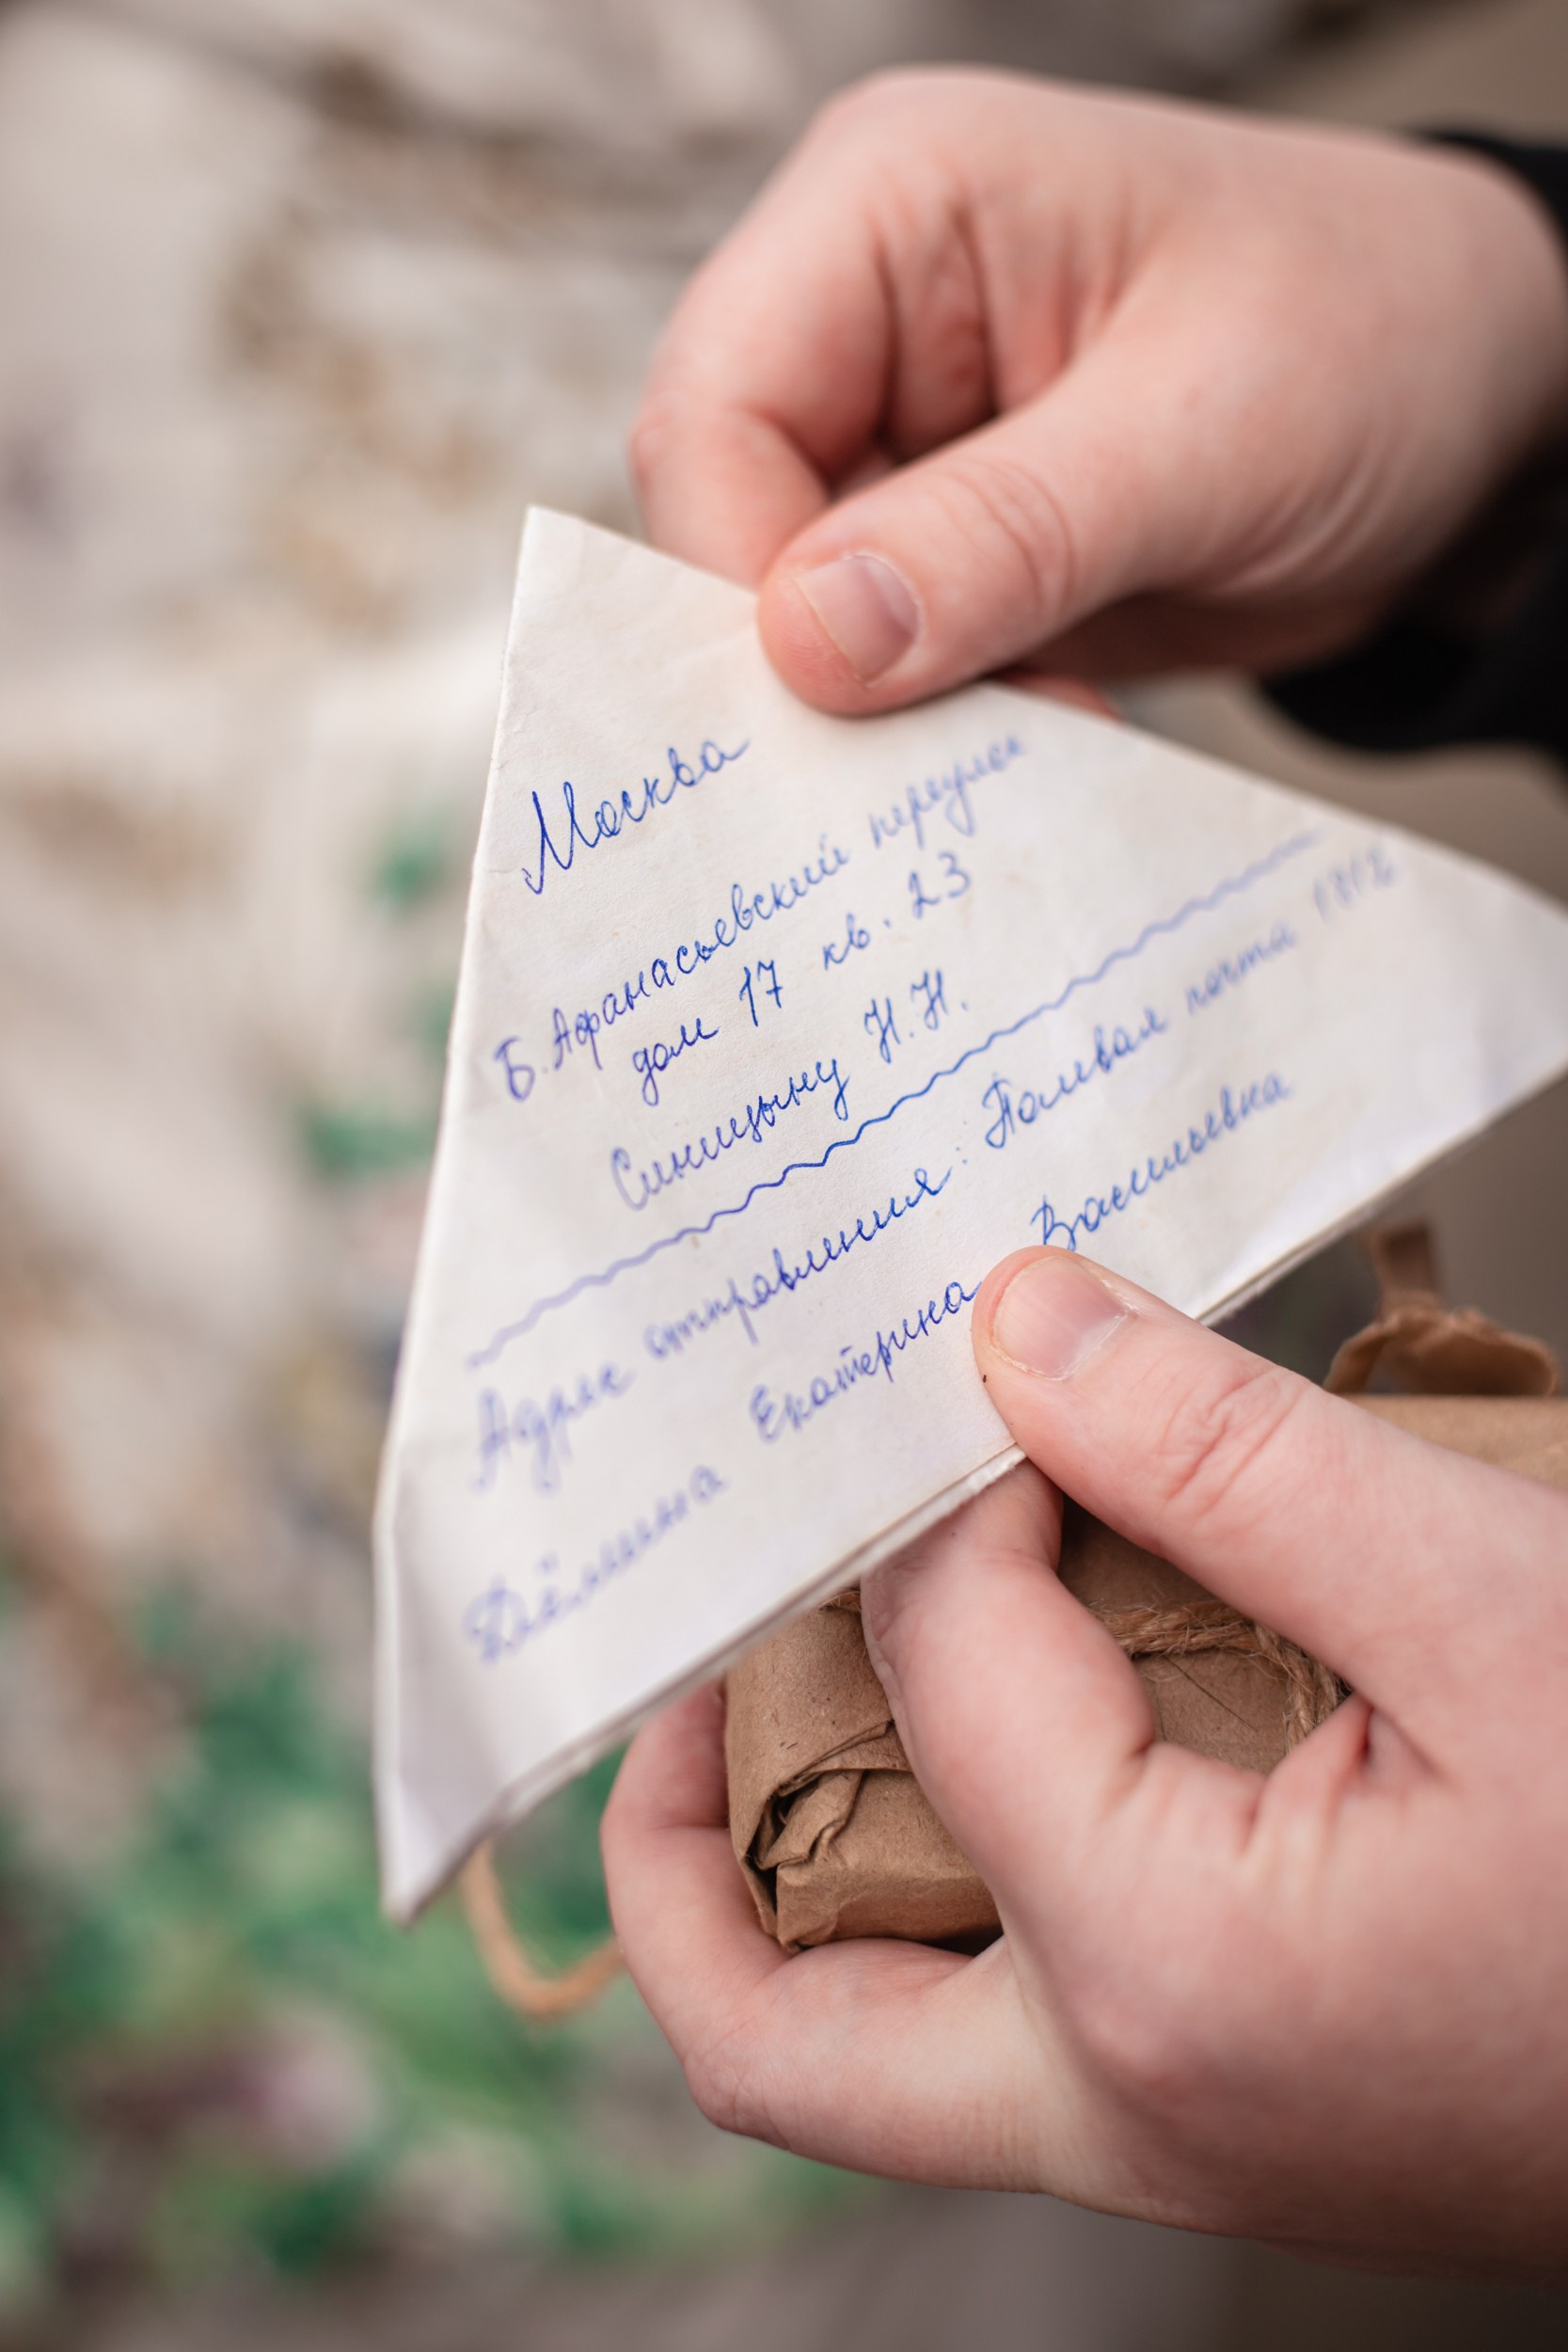 Москва
Б. Афанасьевский переулок
дом 17 кв. 23
Синицыну Н.Н.
Адрес отправления: Полевая почта
Дёмина Екатерина Васильевна